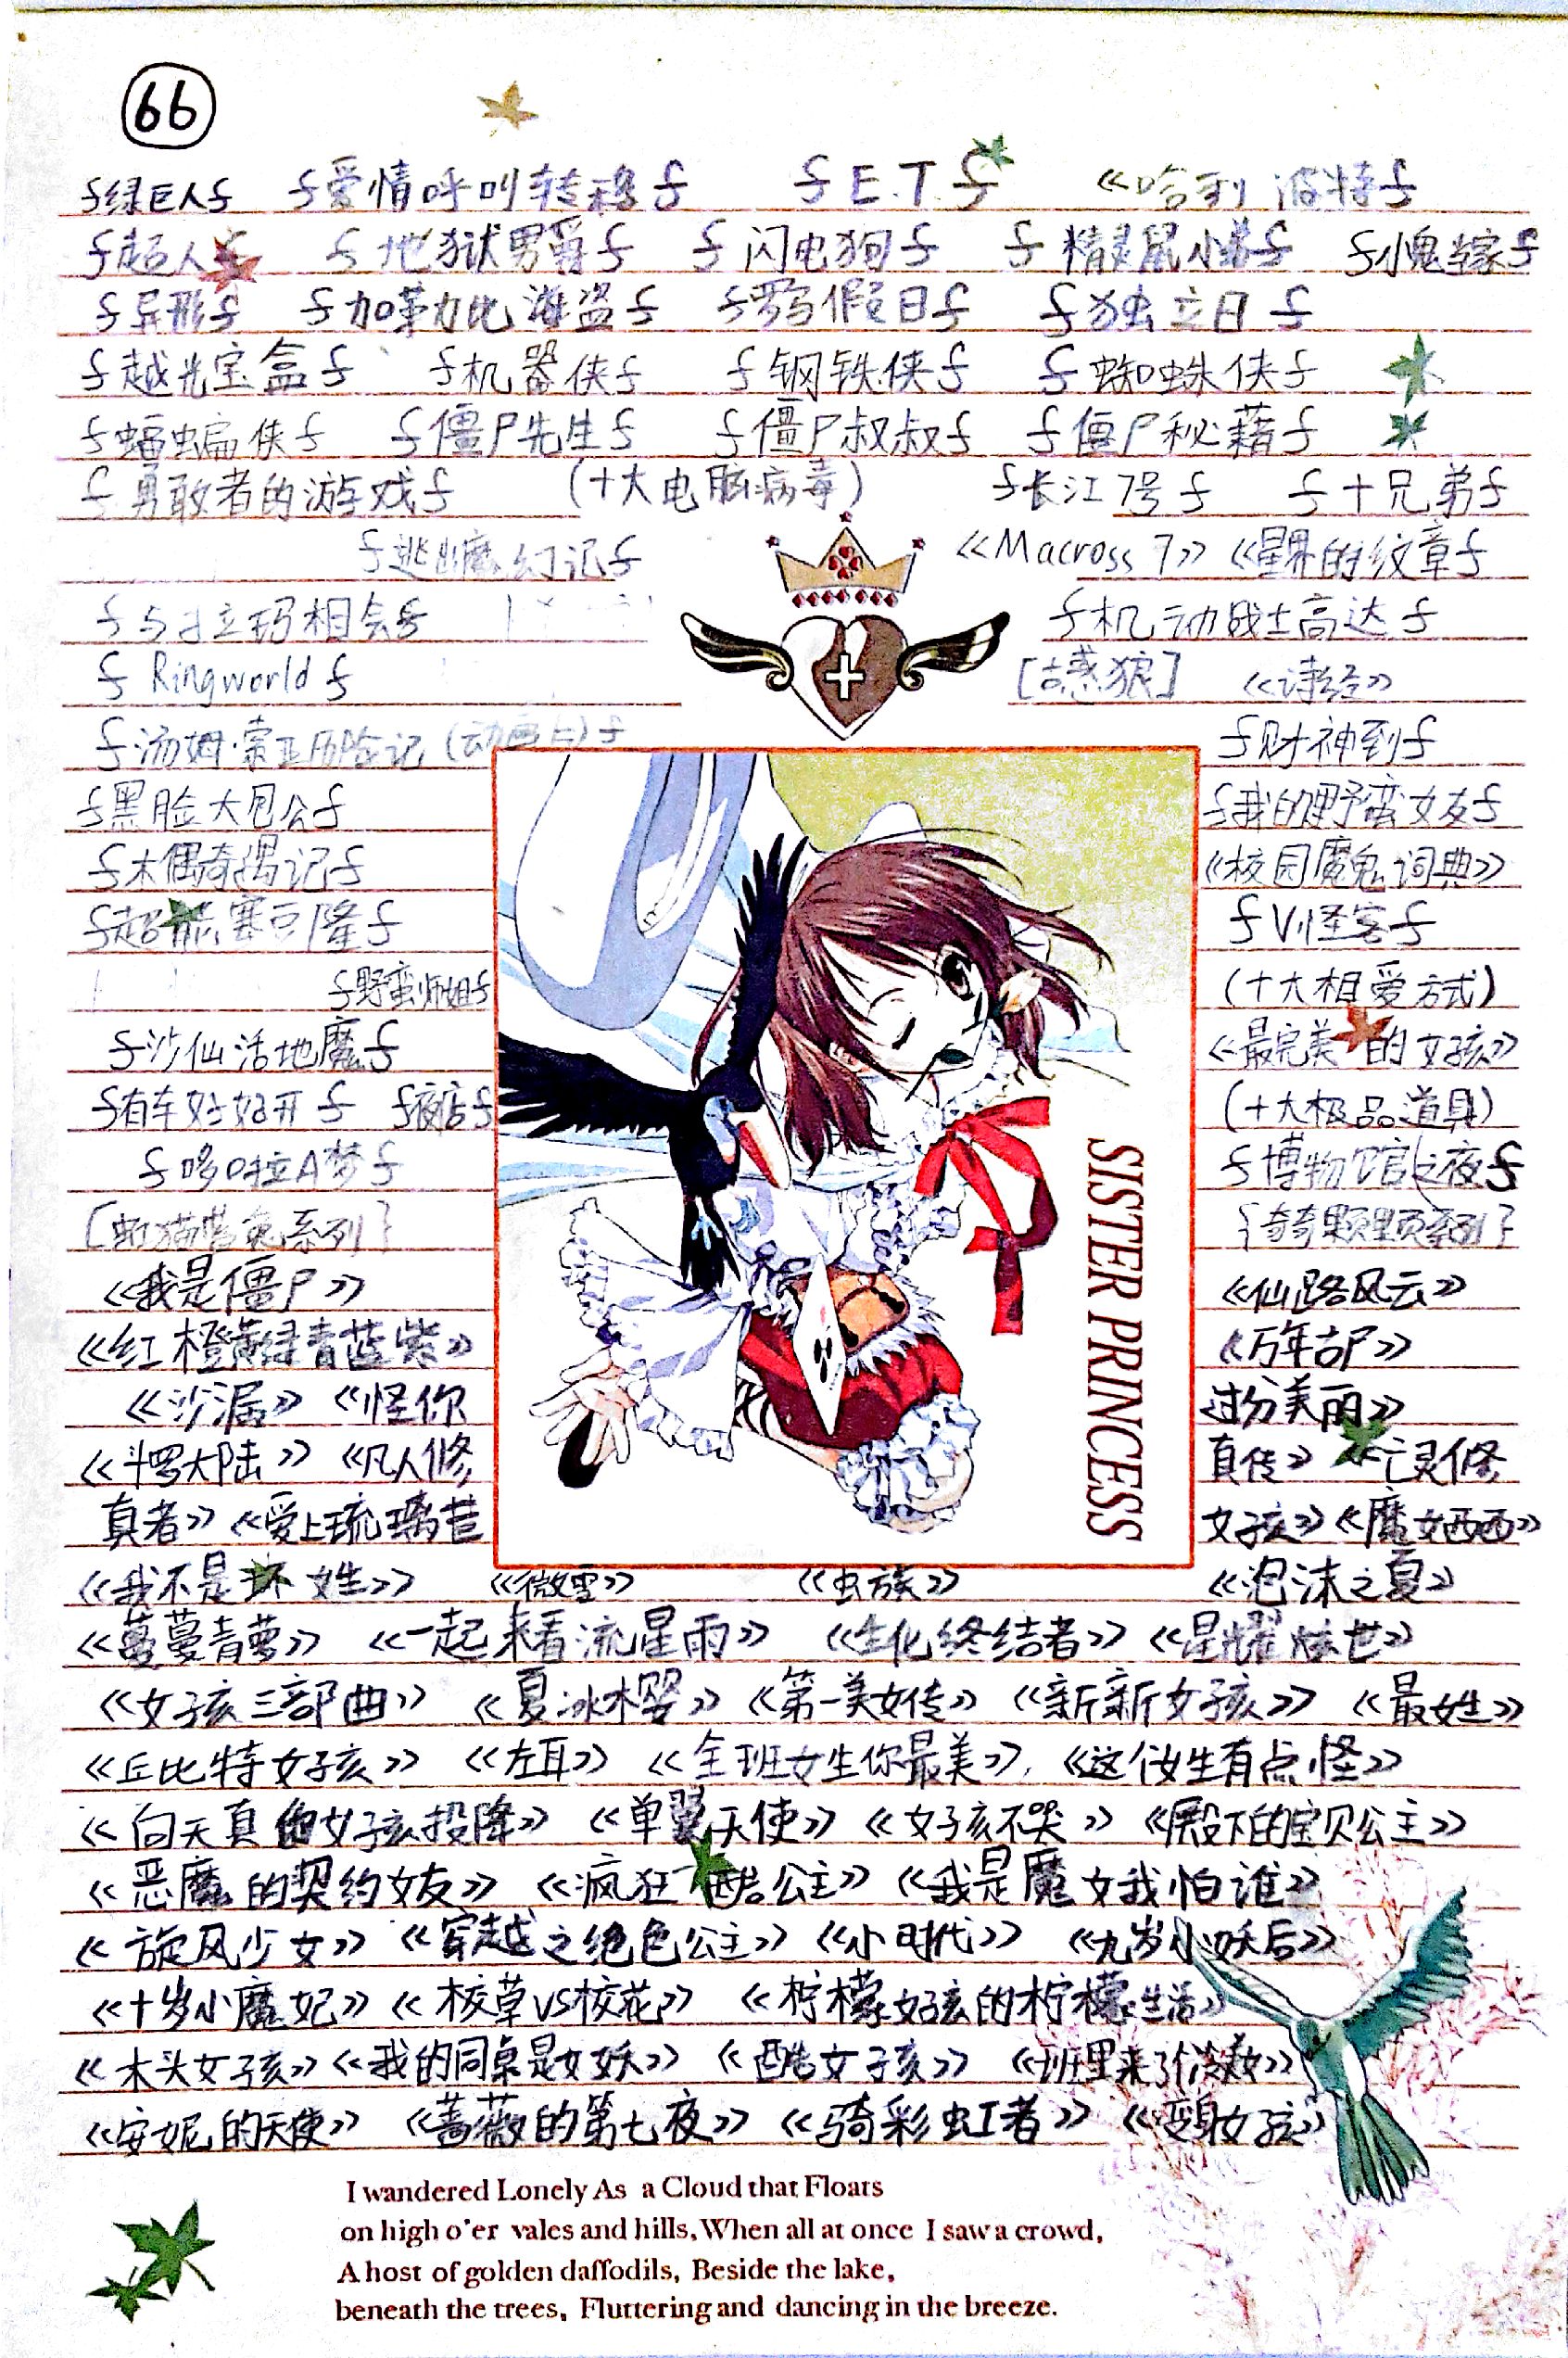 66
∮绿巨人∮ ∮爱情呼叫转移∮ ∮E.T.∮ 《哈利波特∮
∮超人∮ ∮地狱男爵∮ ∮闪电狗∮ ∮精灵鼠小弟∮ ∮小鬼当家∮
∮异形∮ ∮加勒比海盗∮ ∮罗马假日∮ ∮独立日∮
∮越光宝盒∮ ∮机器侠∮ ∮钢铁侠∮ ∮蜘蛛侠∮
∮蝙蝠侠∮ ∮僵尸先生∮ ∮僵尸叔叔∮ ∮僵尸秘藉∮
∮勇敢者的游戏∮ (十大电脑病毒) ∮长江7号∮ ∮十兄弟∮
∮逃出魔幻记∮ 《Macross 7》 《星界的纹章∮
∮与拉玛相会∮ ∮机动战士高达∮
∮Ringworld∮ [古惑狼] 《诗经》
∮汤姆·索亚历险记(动画片)∮ ∮财神到∮
∮黑脸大包公∮ ∮我的野蛮女友∮
∮木偶奇遇记∮ 《校园魔鬼词典》
∮超能塞豆隆∮ ∮V怪客∮
∮野蛮师姐∮ (十大相爱方式)
∮沙仙活地魔∮ 《最完美的女孩》
∮有车好好开∮ ∮夜店∮ (十大极品道具)
∮哆啦A梦∮ ∮博物馆之夜∮
[虹猫蓝兔系列} {奇奇颗颗系列}
《我是僵尸》 《仙路风云》
《红橙黄绿青蓝紫》 《万年古尸》
《沙漏》 《怪你过分美丽》
《斗罗大陆》 《凡人修真传》 《亡灵修
真者》 《爱上琉璃苣女孩》 《魔女西西》
《我不是坏女生》 《微雪》 《虫族》 《泡沫之夏》
《蔓蔓青萝》 《一起来看流星雨》 《生化终结者》 《星耀炫世》
《女孩三部曲》 《夏冰樱》 《第一美女传》 《新新女孩》 《最女生》
《丘比特女孩》 《左耳》 《全班女生你最美》 《这个女生有点怪》
《向天真的女孩投降》 《单翼天使》 《女孩不哭》 《殿下的宝贝公主》
《恶魔的契约女友》 《疯狂酷公主》 《我是魔女我怕谁》
《旋风少女》 《穿越之绝色公主》 《小时代》 《九岁小妖后》
《十岁小魔妃》 《校草VS校花》 《柠檬女孩的柠檬生活》
《木头女孩》 《我的同桌是女妖》 《酷女孩》 《班里来了个冷美女》
《安妮的天使》 《蔷薇的第七夜》 《骑彩虹者》 《变身女孩》
SISTER PRINCESS
I wandered Lonely As a Cloud that Floats
on high o'er vales and hills, When all at once I saw a crowd,
A host of golden daffodils, Beside the lake,
beneath the trees, Fluttering and dancing in the breeze.